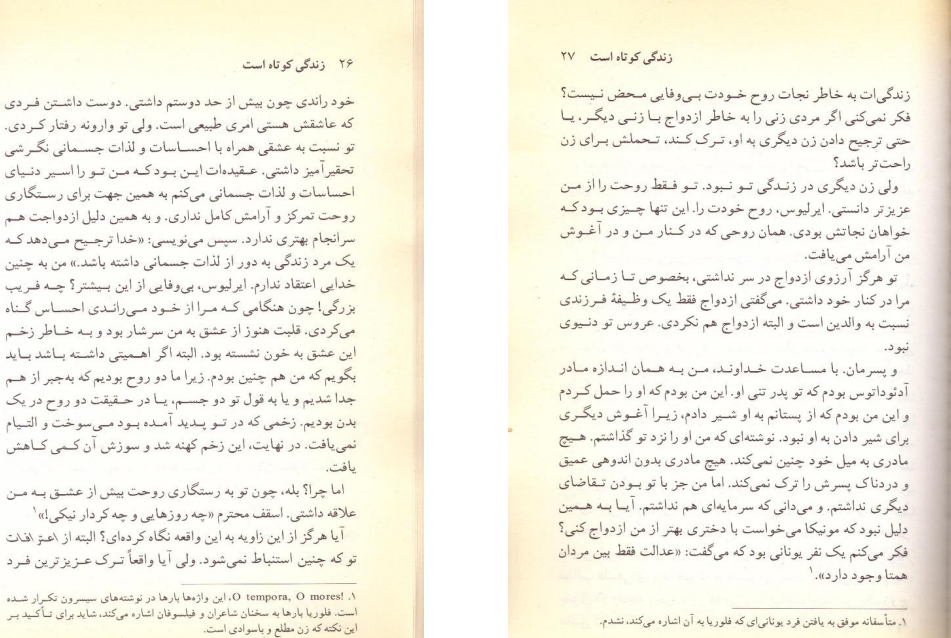 ۲۶ زندگی کوتاه است
خود راندی چون بیش از حد دوستم داشتی. دوست داشتن فردی
که عاشقش هستی امری طبیعی است. ولی تو وارونه رفتار کردی.
تو نسبت به عشقی همراه با احساسات و لذات جسمانی نگرشی
تحقیرآمیز داشتی. عقیده‌ات این بود که من تو را اسیر دنیای
احساسات و لذات جسمانی می‌کنم به همین جهت برای رستگاری
روحت تمرکز و آرامش کامل نداری. و به همین دلیل ازدواجت هم
سرانجام بهتری ندارد. سپس می‌نویسی: «خدا ترجیح می‌دهد که
یک مرد زندگی به دور از لذات جسمانی داشته باشد.» من به چنین
خدایی اعتقاد ندارم. ایرلیوس، بی‌وفایی از این بیشتر؟ چه فریب
بزرگی! چون هنگامی که مرا از خود می‌راندی احساس گناه
می‌کردی. قلبت هنوز از عشق به من سرشار بود و به خاطر زخم
این عشق به خون نشسته بود. البته اگر اهمیتی داشته باشد باید
بگویم که من هم چنین بودم. زیرا ما دو روح بودیم که به‌جبر از هم
جدا شدیم و یا به قول تو دو جسم، یا در حقیقت دو روح در یک
بدن بودیم. زخمی که در تو پدید آمده بود می‌سوخت و التیام
نمی‌یافت. در نهایت، این زخم کهنه شد و سوزش آن کمی کاهش
یافت.
اما چرا؟ بله، چون تو به رستگاری روحت بیش از عشق به من
علاقه داشتی. اسقف محترم «چه روزهایی و چه کردار نیکی!»۱
آیا هرگز از این زاویه به این واقعه نگاه کرده‌ای؟ البته از اعترافات
تو که چنین استنباط نمی‌شود. ولی آیا واقعاً ترک عزیزترین فرد
۱. O tempora, O mores!، این واژه‌ها بارها در نوشته‌های سیسرون تکرار شده
است. فلوریا بارها به سخنان شاعران و فیلسوفان اشاره می‌کند، شاید برای تأکید بر
این نکته که زن مطلع و باسوادی است.
زندگی کوتاه است ۲۷
زندگی‌ات به خاطر نجات روح خودت بی‌وفایی محض نیست؟
فکر نمی‌کنی اگر مردی زنی را به خاطر ازدواج با زنی دیگر، یا
حتی ترجیح دادن زن دیگری به او، ترک کند، تحملش برای زن
راحت‌تر باشد؟
ولی زن دیگری در زندگی تو نبود. تو فقط روحت را از من
عزیزتر دانستی. ایرلیوس، روح خودت را. این تنها چیزی بود که
خواهان نجاتش بودی. همان روحی که در کنار من و در آغوش
من آرامش می‌یافت.
تو هرگز آرزوی ازدواج در سر نداشتی، بخصوص تا زمانی که
مرا در کنار خود داشتی. می‌گفتی ازدواج فقط یک وظیفهٔ فرزندی
نسبت به والدین است و البته ازدواج هم نکردی. عروس تو دنیوی
نبود.
و پسرمان. با مساعدت خداوند، من به همان اندازه مادر
آدئوداتوس بودم که تو پدر تنی او. این من بودم که او را حمل کردم
و این من بودم که از پستانم به او شیر دادم، زیرا آغوش دیگری
برای شیر دادن به او نبود. نوشته‌ای که من او را نزد تو گذاشتم. هیچ
مادری به میل خود چنین نمی‌کند. هیچ مادری بدون اندوهی عمیق
و دردناک پسرش را ترک نمی‌کند. اما من جز با تو بودن تقاضای
دیگری نداشتم. و می‌دانی که سرمایه‌ای هم نداشتم. آیا به همین
دلیل نبود که مونیکا می‌خواست با دختری بهتر از من ازدواج کنی؟
فکر می‌کنم یک نفر یونانی بود که می‌گفت: «عدالت فقط بین مردان
همتا وجود دارد».۱
۱. متأسفانه موفق به یافتن فرد یونانی‌ای که فلوریا به آن اشاره می‌کند، نشدم.